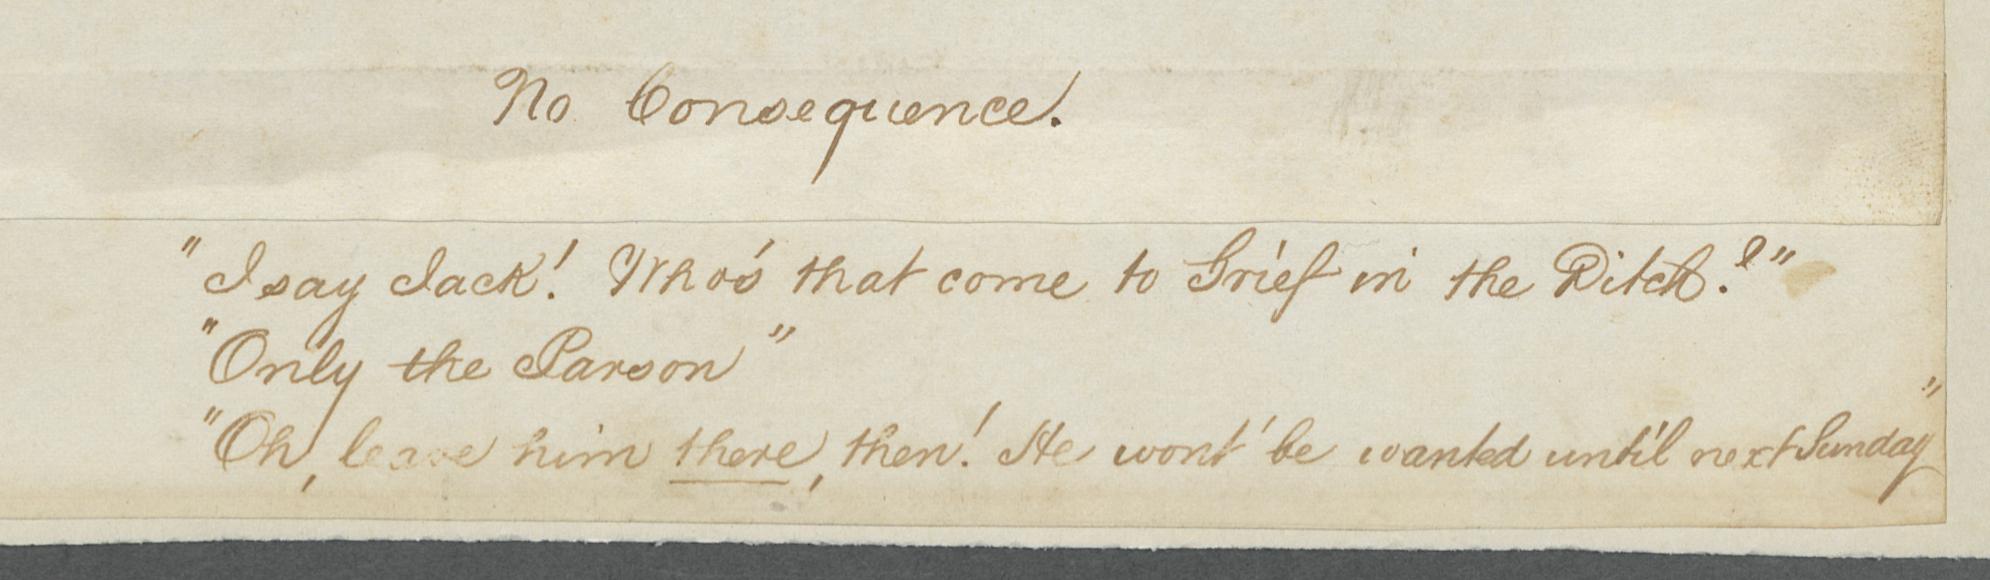 No Consequence.
"I say Jack! Who's that come to Grief in the Ditch.?"
"Only the Parson"
"Oh, leave him there, then! He wont' be wanted until next Sunday"